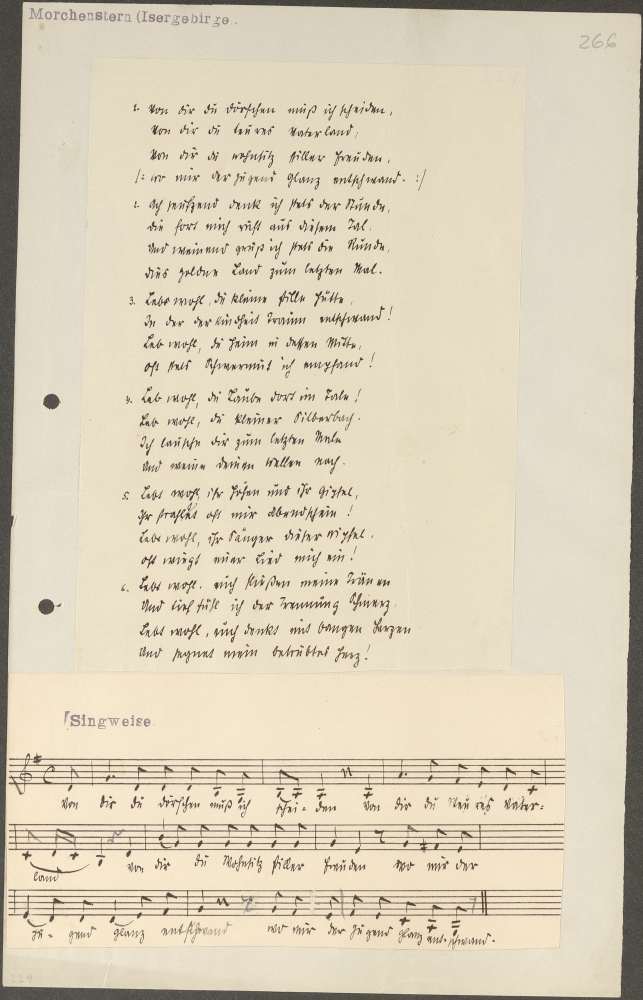 Morchenstern (Isergebirge.
266
1. Von dir du Dörfchen muß ich scheiden,
Von dir du teures Vaterland,
Von dir du Wohnsitz stiller Freuden,
/: wo mir der Jugend Glanz entschwand. :/
2. Ach seufzend denk ich stets der Stunde,
die fort mich ruft aus diesem Tal.
Und weinend grüß ich stets die Runde,
dies goldne Land zum letzten Mal.
3. Lebe wohl, du kleine stille Hütte,
In der der Kindheit Traum entschwand!
Leb wohl, du Heim in dessen Mitte,
oft stets Schwermut ich empfand!
4. Leb wohl, du Laube dort im Tale!
Leb wohl, du kleiner Silberbach.
Ich lausche dir zum letzten Male
Und weine deinen Wellen nach.
5. Lebt wohl, ihr Höhen und ihr Gipfel,
Ihr strahlet oft mir Abendschein!
Lebt wohl, ihr Sänger dieser Wipfel.
oft wiegt euer Lied mich ein!
6. Lebt wohl. euch fließen meine Tränen
Und tief fühl ich der Trennung Schmerz.
Lebt wohl, euch denkt mit bangen Herzen
Und segnet mein betrübtes Herz!
Singweise.
Von dir du Dörfchen muß ich schei-den Von dir du teu res Vater-
land Von dir du Wohnsitz stiller Freuden wo mir der
Ju-gend Glanz entschwand wo mir der Jugend Glanz ent-schwand.